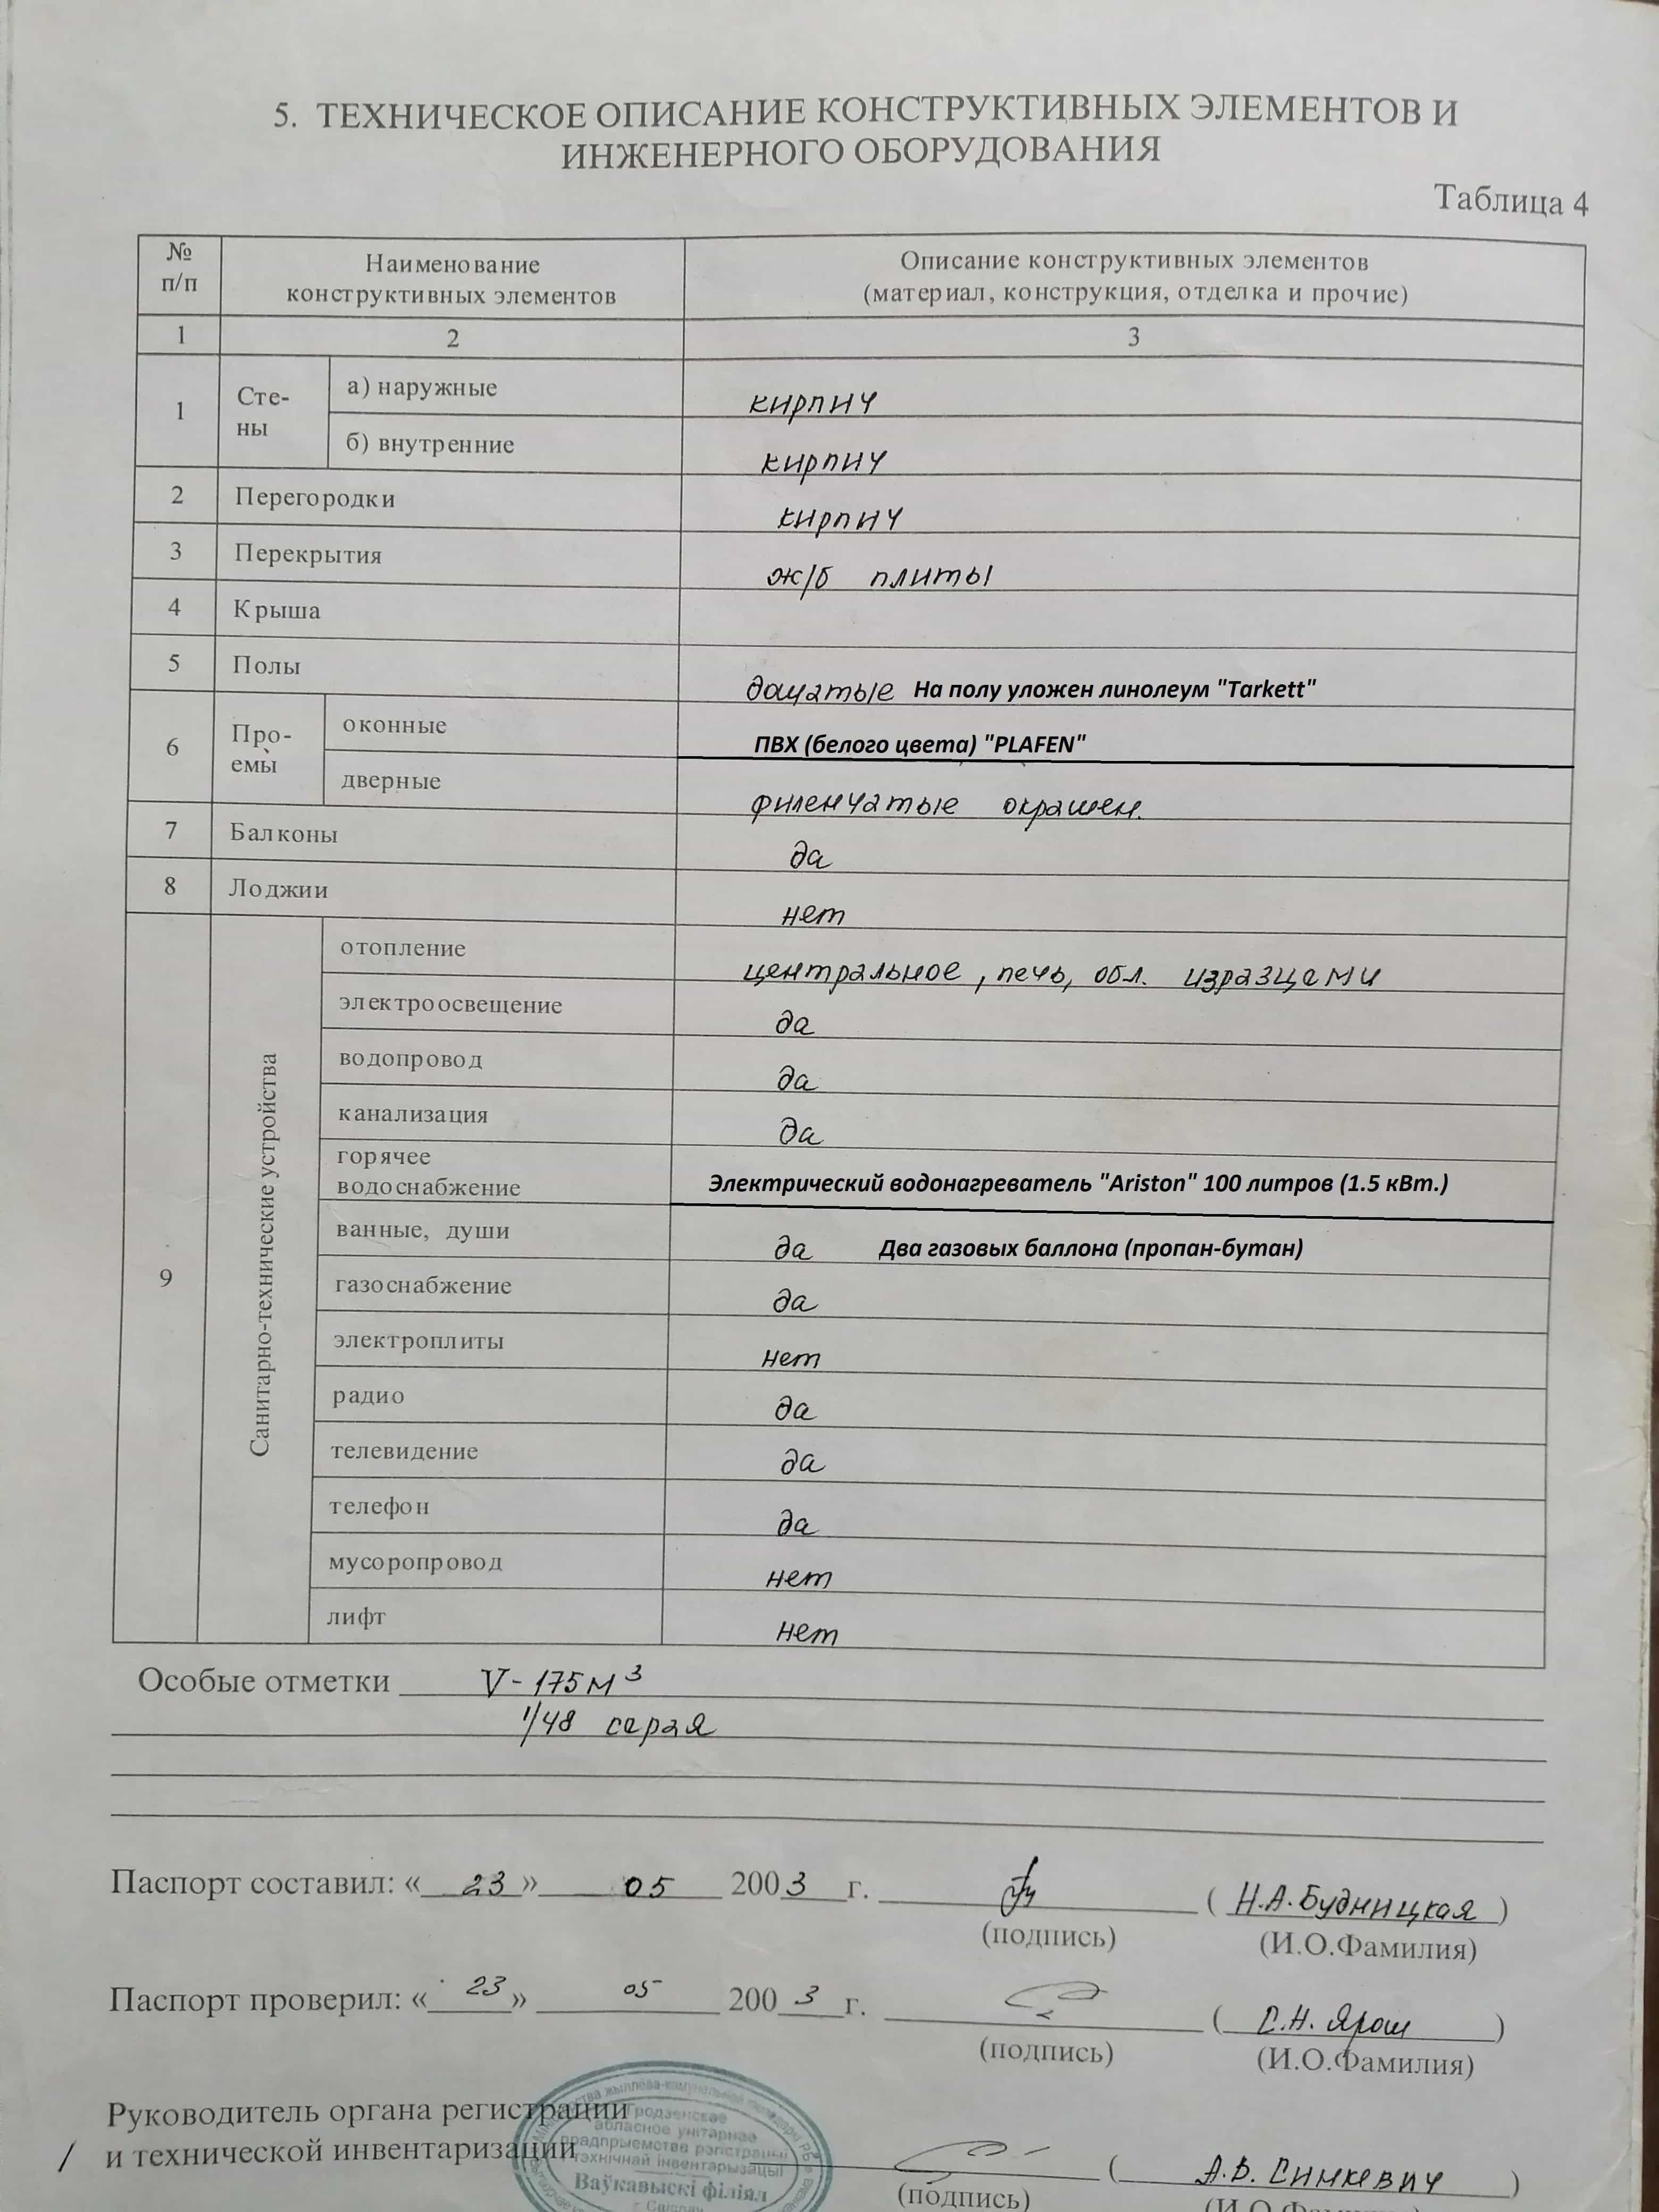 5. ТЕХНИЧЕСКОЕ ОПИСАНИЕ КОНСТРУКТИВНЫХ ЭЛЕМЕНТОВ И
ИНЖЕНЕРНОГО ОБОРУДОВАНИЯ
Таблица 4
№ п/п Наименование конструктивных элементов Описание конструктивных элементов (материал, конструкция, отделка и прочие)
1 2 3
1 Сте-ны а) наружные кирпич
б) внутренние кирпич
2 Перегородки кирпич
3 Перекрытия ж/б плиты
4 Крыша
5 Полы дощатые На полу уложен линолеум "Tarkett"
6 Про-емы оконные ПВХ (белого цвета) "PLAFEN"
дверные филенчатые окрашен.
7 Балконы да
8 Лоджии нет
9 Санитарно-технические устройства
отопление центральное, печь, обл. изразцами
электроосвещение да
водопровод да
канализация да
горячее водоснабжение Электрический водонагреватель "Ariston" 100 литров (1.5 кВт.)
ванные, души да Два газовых баллона (пропан-бутан)
газоснабжение да
электроплиты нет
радио да
телевидение да
телефон да
мусоропровод нет
лифт нет
Особые отметки V-175м³
1/48 сарая
Паспорт составил: «23» 05 2003 г. (Н.А.Будницкая)
(подпись) (И.О.Фамилия)
Паспорт проверил: «23» 05 2003 г. (С.Н. Ярош)
(подпись) (И.О.Фамилия)
Руководитель органа регистрации
и технической инвентаризации (А.В. Синкевич)
(подпись) (И.О.Фамилия)
Гродзенскае
абласное унітарнае
прадпрыемства рэгістрацыі
і тэхнічнай інвентарызацыі
Ваўкавыскі філіял